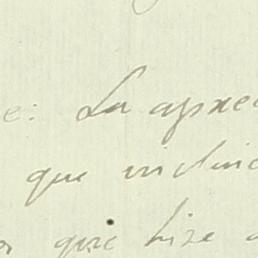 e: La aprec
que inclui
que hize a